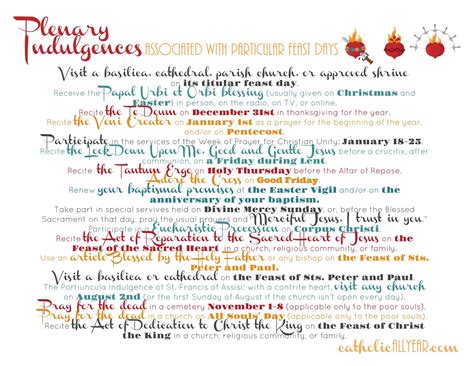 Plenary
Indulgences ASSOCIATED WITH PARTICULAR FEAST DAYS
Visit a basilica, cathedral, parish church, or approved shrine
on its titular feast day.
Receive the Papal Urbi et Orbi blessing (usually given on Christmas and
Easter) in person, on radio, on TV, or online.
Recite the Te Deum on December 31st in thanksgiving for the year.
Recite the Veni Creator on January 1st as a prayer for the beginning of the year,
and/or on Pentecost.
Participate in the services of the Week of Prayer for Christian Unity: January 18-25.
Recite the Look Down Upon Me, Good and Gentle Jesus before a crucifix, after
communion, on a Friday during Lent.
Recite the Tantum Ergo on Holy Thursday before the Altar of Repose.
Adore the Cross on Good Friday.
Renew your baptismal promises at the Easter Vigil and/or on the
anniversary of your baptism.
Take part in special servives held on Divine Mercy Sunday, or, before the Blessed
Sacrament on that day, pray the usual prayers and "Merciful Jesus, I trust in you."
Participate in Eucharistic Procession on Corpus Christi.
Recite the Act of Reparation to the Sacred Heart of Jesus on the
Feast of the Sacred Heart in a church, religious community, or family.
Use an article Blessed by the Holy Father or any bishop on the Feast of Sts.
Peter and Paul.
Visit a basilica or cathedral on the Feast of Sts. Peter and Paul.
The Portiuncula Indulgence of St. Francis of Assisi: with a contrite heart, visit any church
on August 2nd (or the first Sunday of August if the church isn't open every day).
Pray for the dead in a cemetery November 1-8 (applicable only to the poor souls).
Pray for the dead in a church on All Souls' Day (applicable only to the poor souls).
Recite the Act of Dedication to Christ the King on the Feast of Christ
the King in a church, religious community, or family.
catholicALLYEAR.com